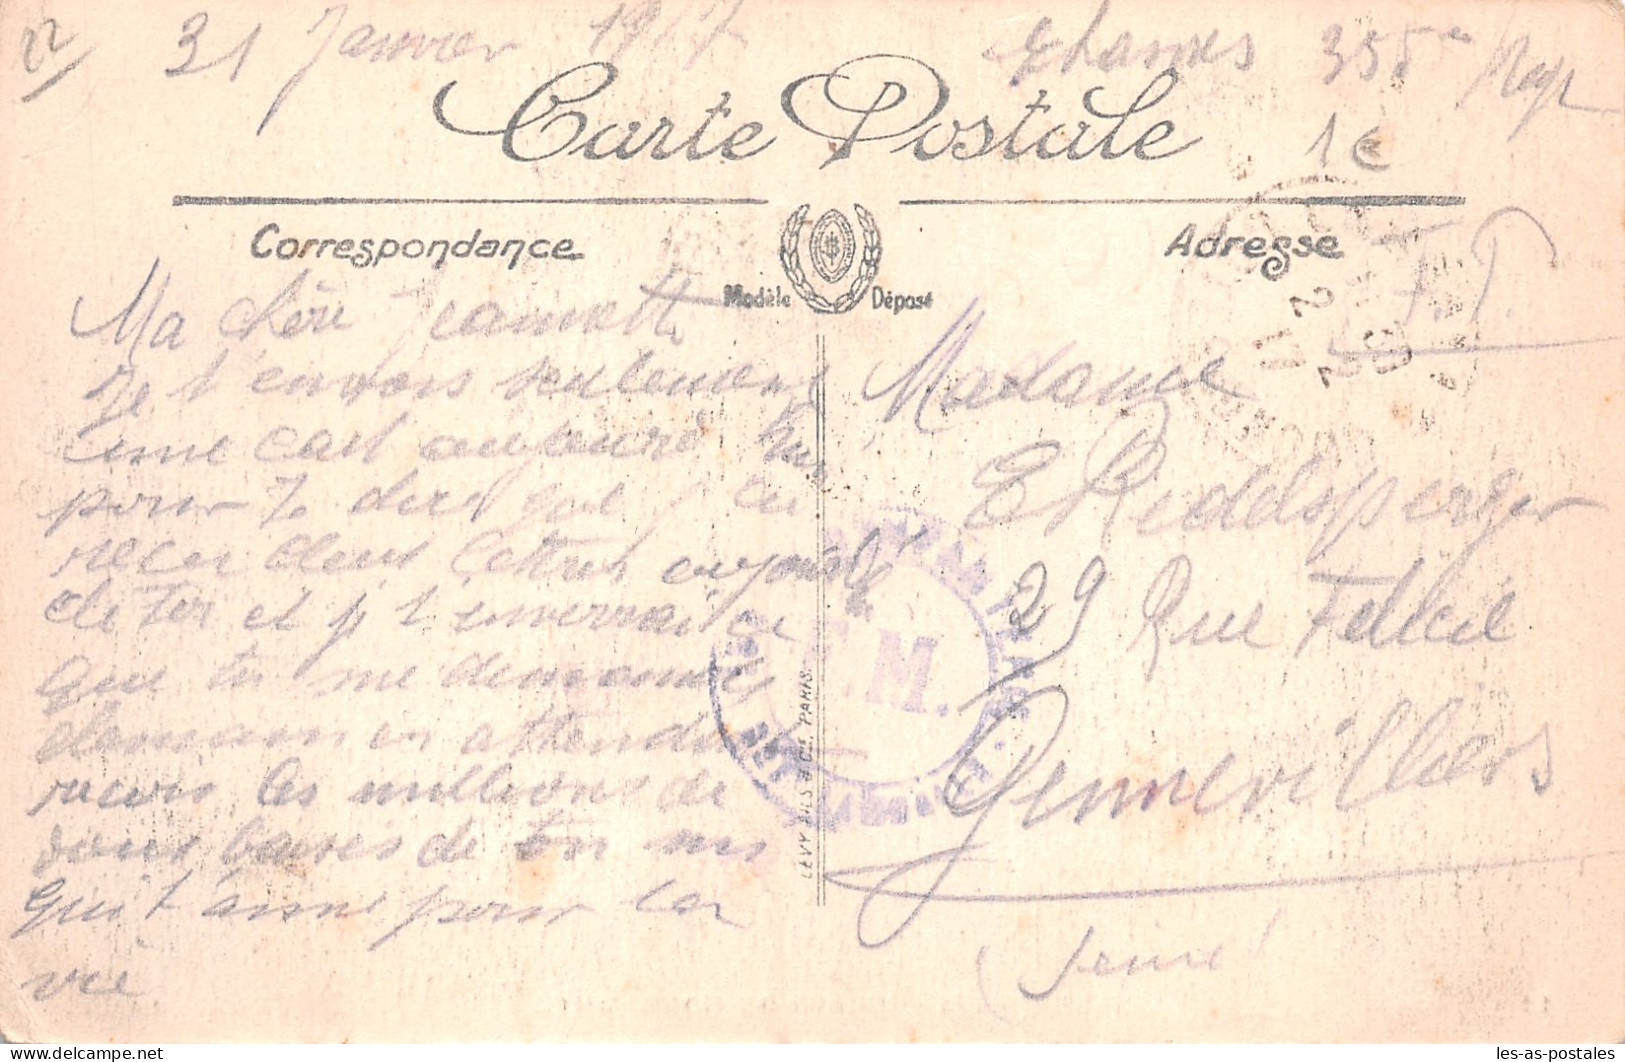 31 Janvier 1917
355e
1€
Carte Postale
Correspondance
Adresse
Modèle Déposé
F.T.
Ma chère Jeannette
Je t'envois seulement
une cart aujourd hui
pour te dire que j'ai
recu deux lettres aujourd
de toi et j t'enverrai ce
que tu me demandes
demain en attendan
recois les millions de
doux baises de ton
qui t'aime pour la
vie
Madame
E Riedelsperger
29 Rue Felicie
Gennevilliers
Seine
F.M.
LEVY FILS & Cie. PARIS.
les-as-postales
les-as-postales | delcampe.net